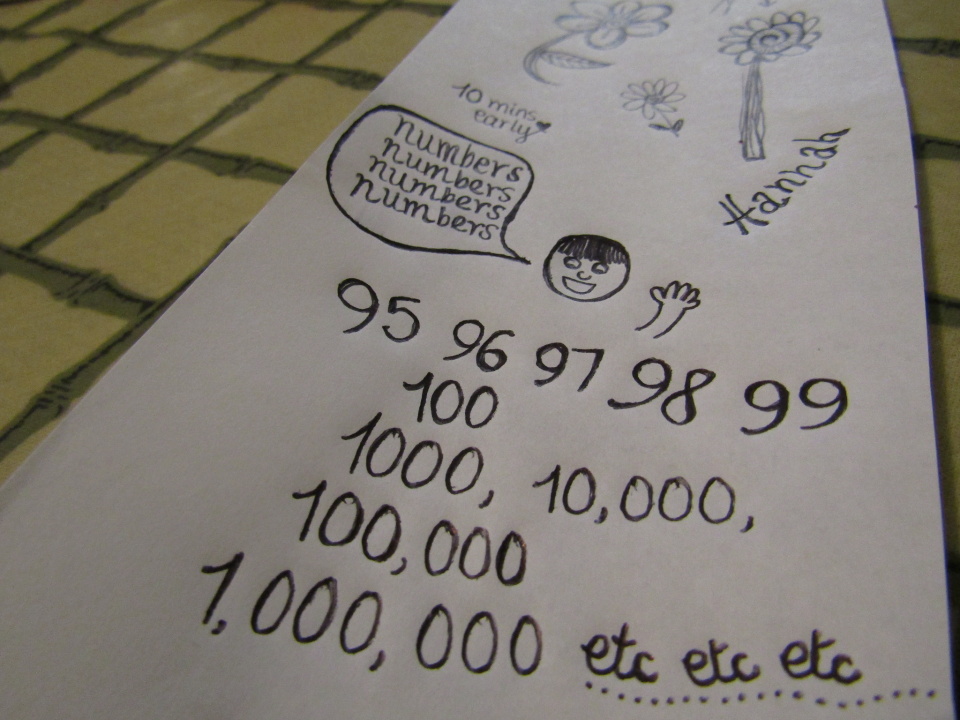 10 mins
early
numbers
numbers
numbers
numbers
Hannah
95 96 97 98 99
100
1000, 10,000,
100,000
1,000,000 etc etc etc